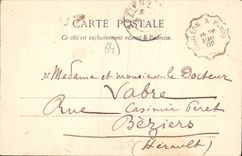 CARTE POSTALE
Ce côté est exclusivement réservé à l'adresse.
Madame et monsieur le Docteur
Vabre
Rue Casimir Péret
Béziers
(Hérault)